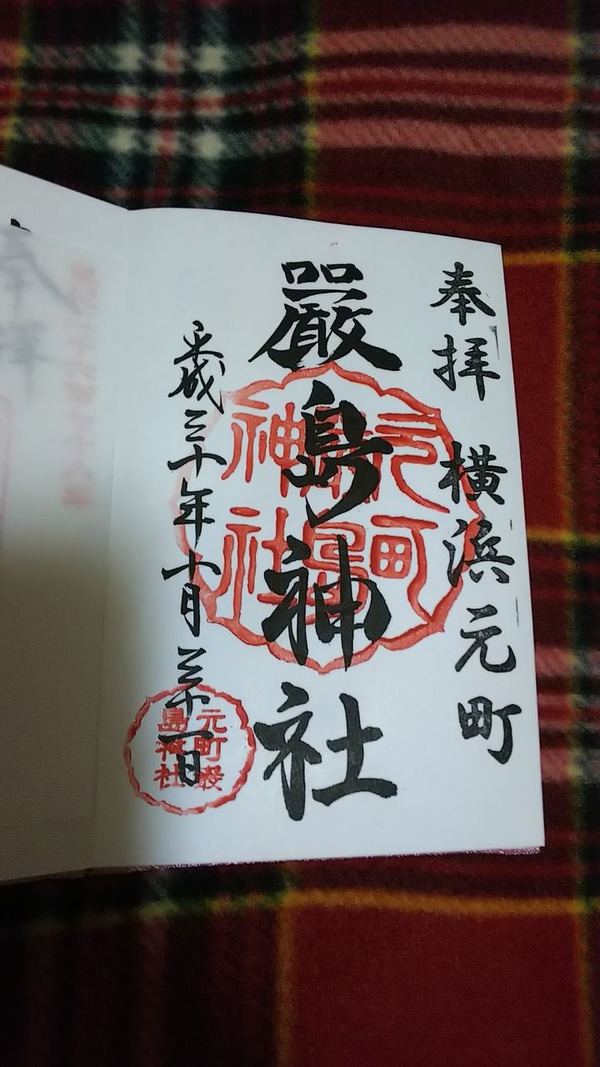 奉拝 横浜元町
嚴島神社
平成三十年十月三十一日
元町嚴島神社
元町嚴島神社